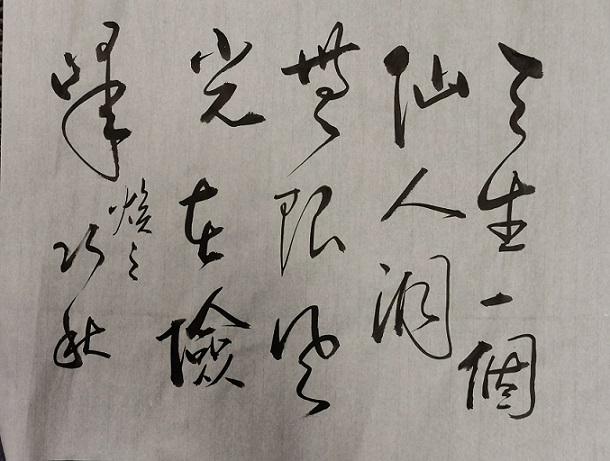 天生一個
仙人洞
無限風
光在險
峰
初秋